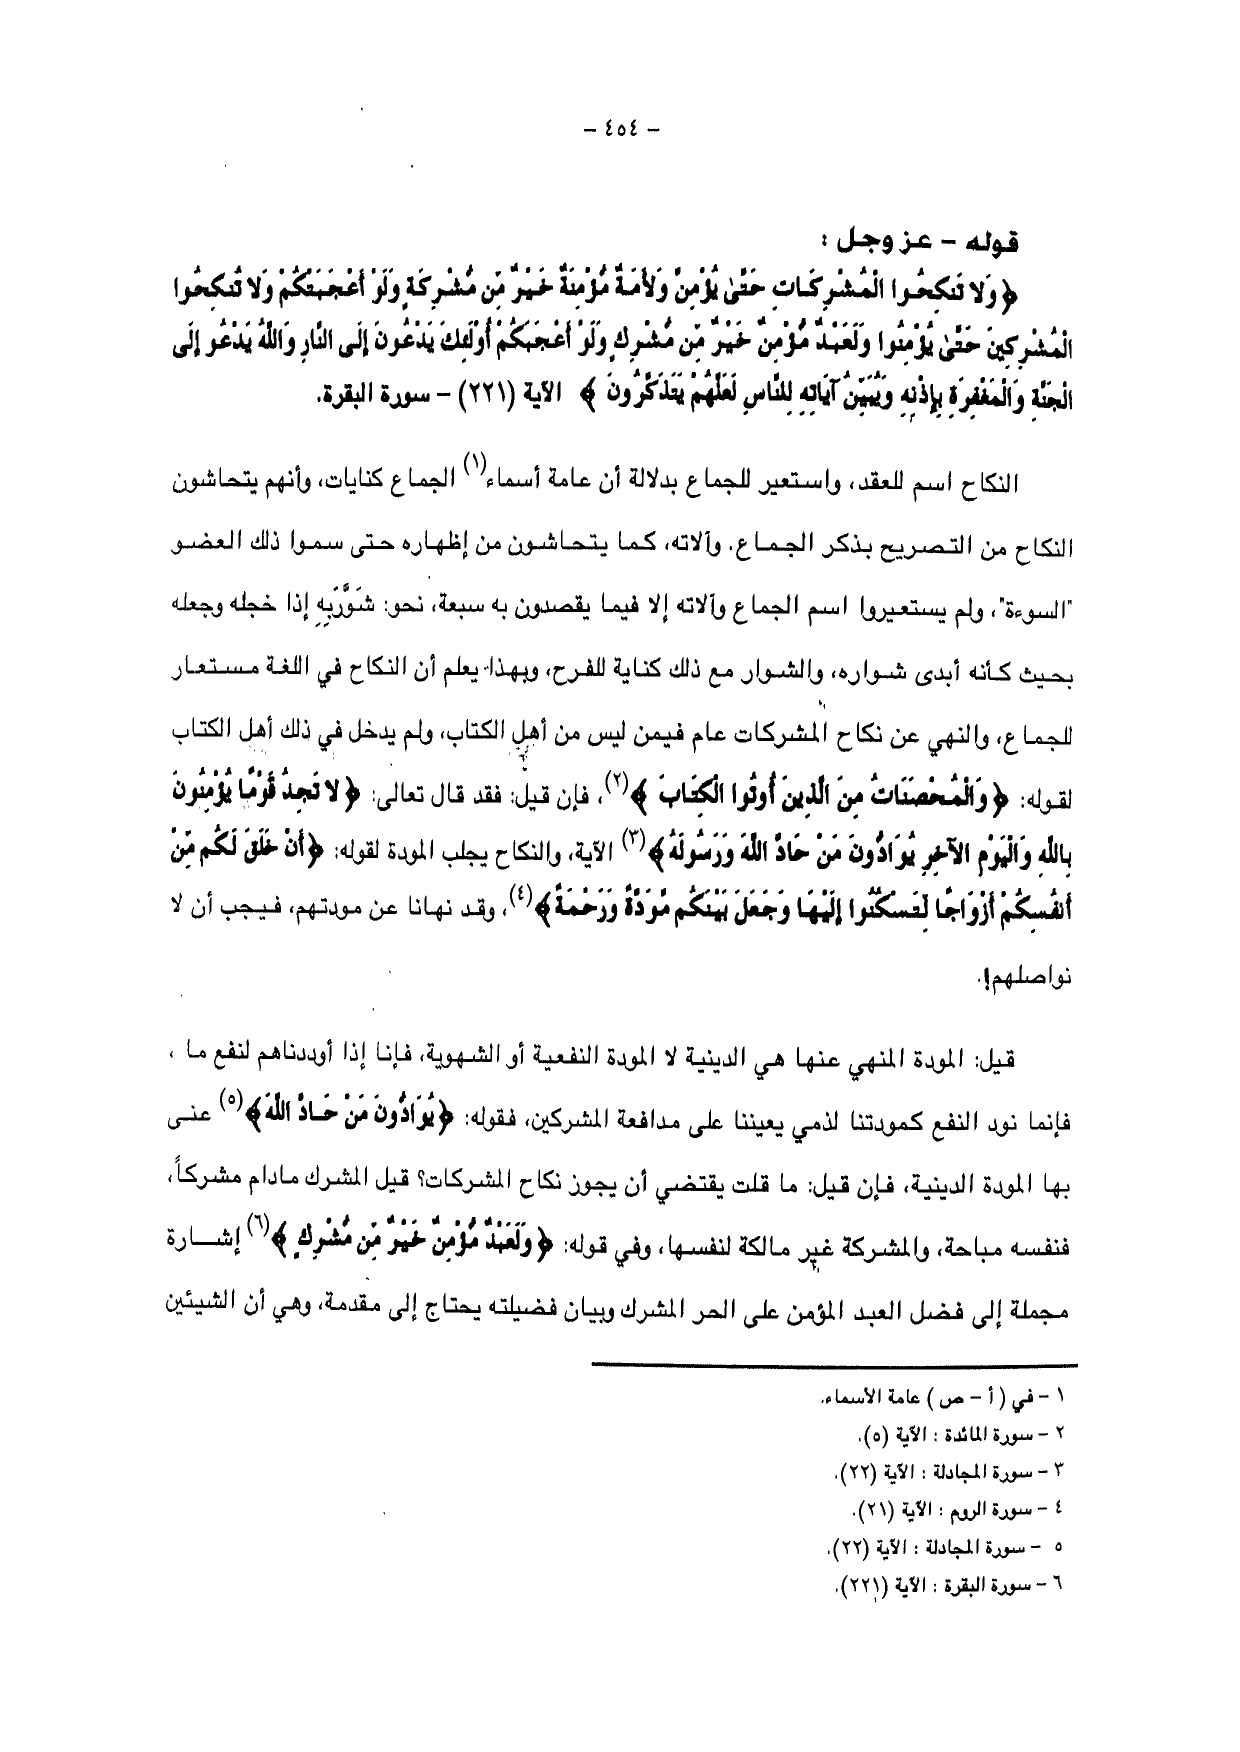 - ٤٥٤ -
قوله - عز وجل :
﴿ وَلا تَنكِحُوا الْمُشْرِكَاتِ حَتَّىٰ يُؤْمِنَّ وَلأَمَةٌ مُؤْمِنَةٌ خَيْرٌ مِّن مُّشْرِكَةٍ وَلَوْ أَعْجَبَتْكُمْ وَلا تُنكِحُوا
الْمُشْرِكِينَ حَتَّىٰ يُؤْمِنُوا وَلَعَبْدٌ مُّؤْمِنٌ خَيْرٌ مِّن مُّشْرِكٍ وَلَوْ أَعْجَبَكُمْ أُوْلَئِكَ يَدْعُونَ إِلَى النَّارِ وَاللَّهُ يَدْعُو إِلَى
الْجَنَّةِ وَالْمَغْفِرَةِ بِإِذْنِهِ وَيُبَيِّنُ آيَاتِهِ لِلنَّاسِ لَعَلَّهُمْ يَتَذَكَّرُونَ ﴾ الآية (٢٢١) - سورة البقرة.
النكاح اسم للعقد، واستعير للجماع بدلالة أن عامة أسماء(١) الجماع كنايات، وأنهم يتحاشون
النكاح من التصريح بذكر الجماع. وآلاته، كما يتحاشون من إظهاره حتى سموا ذلك العضو
"السوءة"، ولم يستعيروا اسم الجماع وآلاته إلا فيما يقصدون به سبعة، نحو: شَوَّرَبِهِ إذا خجله وجعله
بحيث كأنه أبدى شواره، والشوار مع ذلك كناية للفرح، وبهذا يعلم أن النكاح في اللغة مستعار
للجماع، والنهي عن نكاح المشركات عام فيمن ليس من أهل الكتاب، ولم يدخل في ذلك أهل الكتاب
لقوله: ﴿ وَالْمُحْصَنَاتُ مِنَ الَّذِينَ أُوتُوا الْكِتَابَ ﴾(٢)، فإن قيل: فقد قال تعالى: ﴿ لا تَجِدُ قَوْمًا يُؤْمِنُونَ
بِاللَّهِ وَالْيَوْمِ الآخِرِ يُوَادُّونَ مَنْ حَادَّ اللَّهَ وَرَسُولَهُ ﴾(٣) الآية، والنكاح يجلب المودة لقوله: ﴿ أَنْ خَلَقَ لَكُم مِّنْ
أَنفُسِكُمْ أَزْوَاجًا لِّتَسْكُنُوا إِلَيْهَا وَجَعَلَ بَيْنَكُم مَّوَدَّةً وَرَحْمَةً ﴾(٤)، وقد نهانا عن مودتهم، فيجب أن لا
نواصلهم!.
قيل: المودة المنهي عنها هي الدينية لا المودة النفعية أو الشهوية، فإنا إذا أوددناهم لنفع ما ،
فإنما نود النفع كمودتنا لذمي يعيننا على مدافعة المشركين، فقوله: ﴿ يُوَادُّونَ مَنْ حَادَّ اللَّهَ ﴾(٥) عنى
بها المودة الدينية، فإن قيل: ما قلت يقتضي أن يجوز نكاح المشركات؟ قيل المشرك مادام مشركاً،
فنفسه مباحة، والمشركة غير مالكة لنفسها، وفي قوله: ﴿ وَلَعَبْدٌ مُّؤْمِنٌ خَيْرٌ مِّن مُّشْرِكٍ ﴾(٦) إشارة
مجملة إلى فضل العبد المؤمن على الحر المشرك وبيان فضيلته يحتاج إلى مقدمة، وهي أن الشيئين
١ - في ( أ - ص ) عامة الأسماء.
٢ - سورة المائدة : الآية (٥).
٣ - سورة المجادلة : الآية (٢٢).
٤ - سورة الروم : الآية (٢١).
٥ - سورة المجادلة : الآية (٢٢).
٦ - سورة البقرة : الآية (٢٢١).